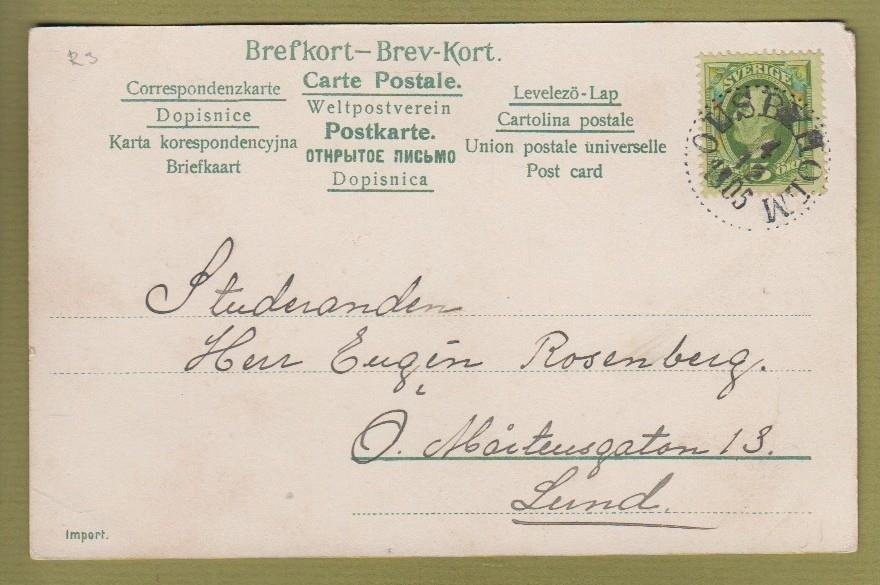 R3
Brefkort–Brev-Kort.
Correspondenzkarte
Dopisnice
Karta korespondencyjna
Briefkaart
Carte Postale.
Weltpostverein
Postkarte.
ОТКРЫТОЕ ПИСЬМО
Dopisnica
Levelező-Lap
Cartolina postale
Union postale universelle
Post card
SVERIGE
OVESHOLM
1905
Studeranden
Herr Eugén Rosenberg.
O. Mårtensgatan 13.
Lund.
Import.